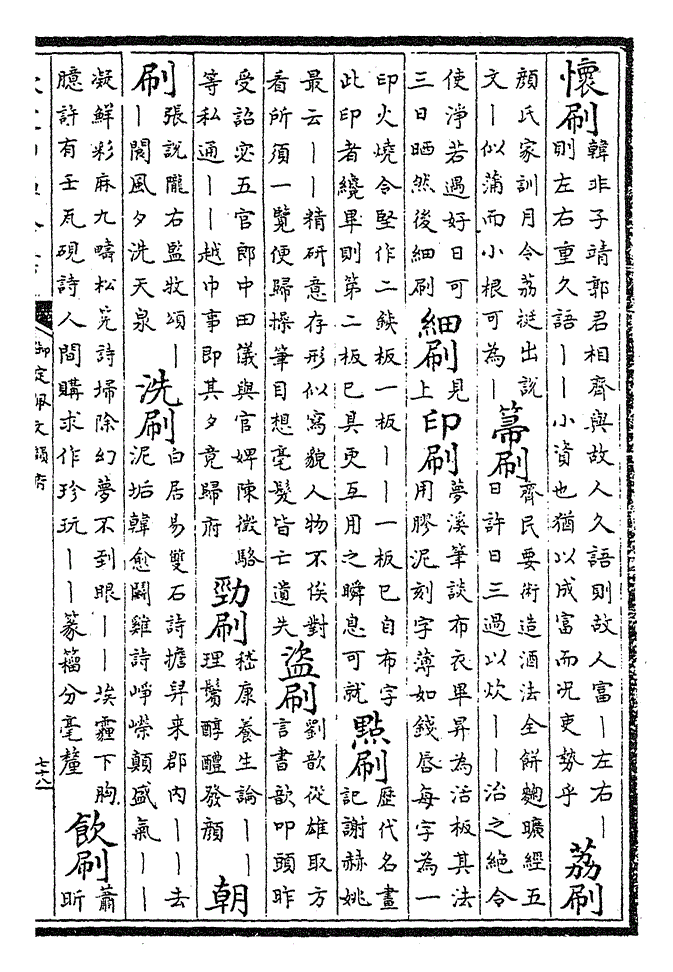 懷刷韓非子靖郭君相齊與故人久語則故人富丨左右丨
則左右重久語丨丨小資也猶以成富而况吏勢乎荔刷
顔氏家訓月令荔挺出說
文丨似蒲而小根可為丨箒刷齊民要術造酒法全餅麴曬經五
日許日三過以炊丨丨治之絶令
使淨若遇好日可
三日晒然後細刷細刷見上印刷夢溪筆談布衣畢昇為活板其法
用膠泥刻字薄如錢唇每字為一
印火燒令堅作二鐵板一板丨丨一板已自布字
此印者纔畢則第二板已具更互用之瞬息可就點刷歷代名畫
記謝赫姚
最云丨丨精研意存形似寫貌人物不俟對
看所須一覽便歸操筆目想毫髮皆亡遺失盜刷劉歆從雄取方
言書歆叩頭昨
受詔宓五官郎中田儀與官婢陳徵駱
等私通丨丨越巾事即其夕竟歸府勁刷嵇康養生論丨丨
理鬢醇醴發顔朝
刷張說隴右監牧頌丨
丨閬風夕洗天泉洗刷白居易雙石詩擔舁来郡内丨丨去
泥垢韓愈鬭雞詩崢嶸顛盛氣丨丨
凝鮮彩麻九疇松筅詩掃除幻夢不到眼丨丨埃霾下胸
臆許有壬瓦硯詩人間購求作珍玩丨丨篆籀分毫釐飲刷蕭
昕
御定佩文韻府
七十八